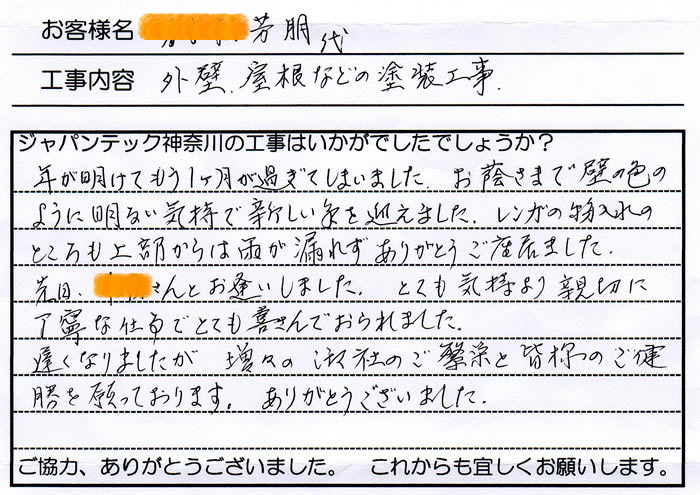 お客様名 芳朋代
工事内容 外壁、屋根などの塗装工事.
ジャパンテック神奈川の工事はいかがでしたでしょうか？
年が明けてもう1ヶ月が過ぎてしまいました. お蔭さまで壁の色の
ように明るい気持で新しい年を迎えました. レンガの物入れの
ところも上部からは雨が漏れずありがとうご座居ました.
先日、 さんとお逢いしました. とても気持よく親切に
丁寧な仕事でとても喜んでおられました.
遅くなりましたが 増々の 御社のご繁栄と皆様のご健
勝を願っております. ありがとうございました.
ご協力、ありがとうございました。 これからも宜しくお願いします。